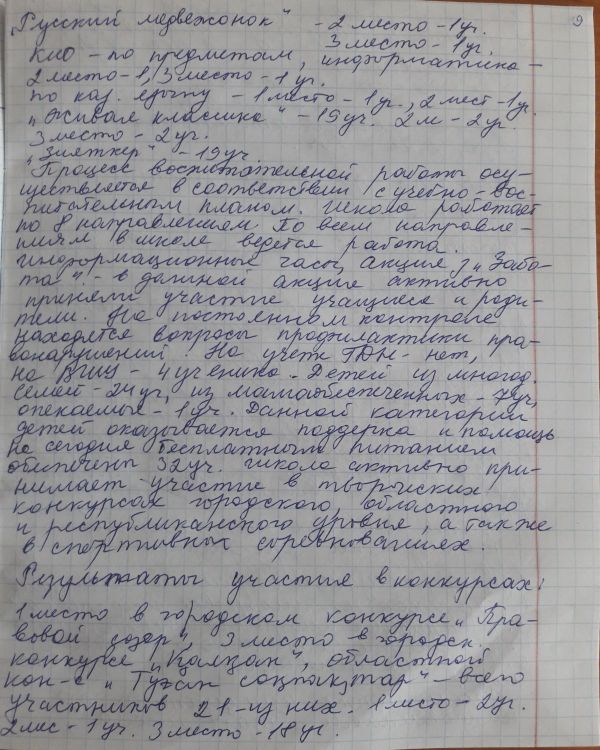 9
„Русский медвежонок" - 2 место - 1 уч.
3 место - 1 уч.
КИО - по предметам, информатика -
2 место - 1, 3 место - 1 уч.
По каз. языку - 1 место - 1 уч., 2 мест - 1 уч.
„Живая классика" - 19 уч. 2 м - 2 уч.
3 место - 2 уч.
„Зияткер" - 19 уч.
Процесс воспитательной работы осу-
ществляется в соответствии с учебно-вос-
питательным планом. Школа работает
по 8 направлениям. По всем направле-
ниям в школе ведется работа.
Информационные часы, акция „Забо-
та". - в данной акции активно
приняли участие учащиеся и роди-
тели. На постоянном контроле
находятся вопросы профилактики пра-
вонарушений. На учете ГДН - нет,
на ВШУ - 4 ученика. Детей из многод.
семей - 24 уч, из малообеспеченных - 7 уч,
опекаемые - 1 уч. Данной категории
детей оказывается поддержка и помощь
На сегодня бесплатным питанием
обеспечены 32 уч. Школа активно при-
нимает участие в творческих
конкурсах городского, областного
и республиканского уровня, а также
в спортивных соревнованиях.
Результаты участия в конкурсах:
1 место в городском конкурсе „Пра-
вовой дозор", 3 место в городск.
конкурсе „Қалқан", областной
кон-с „Туған соқпақтар" - всего
участников 21 - из них. 1 место - 2 уч.
2 мес - 1 уч. 3 место - 18 уч.